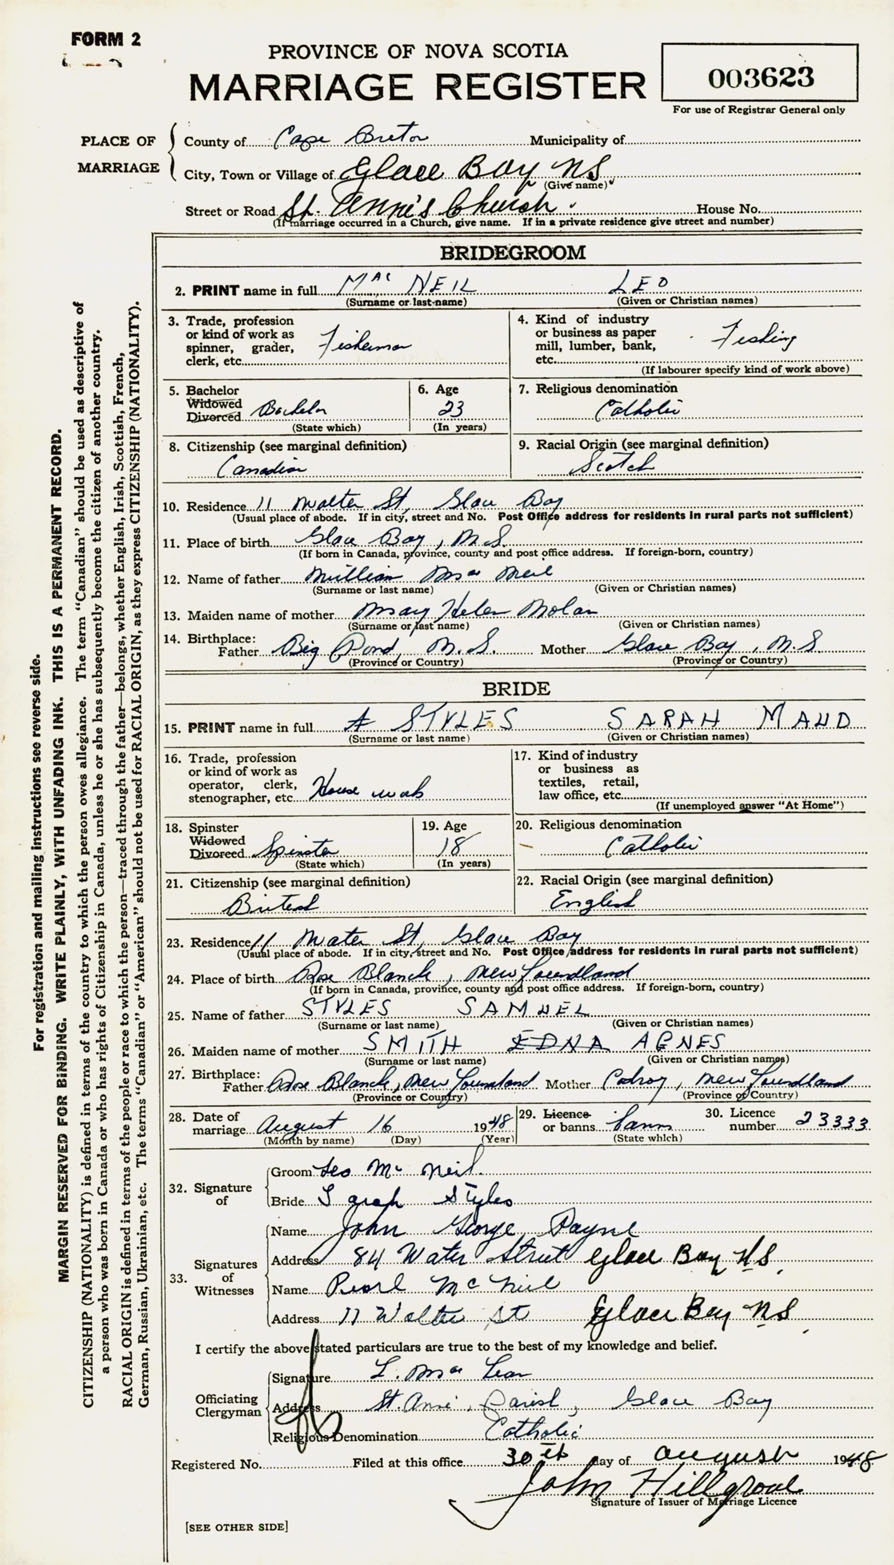 FORM 2
PROVINCE OF NOVA SCOTIA
MARRIAGE REGISTER
003623
For use of Registrar General only
PLACE OF MARRIAGE
County of Cape Breton Municipality of
City, Town or Village of Glace Bay N.S
(Give name)
Street or Road St. Anne's Church. House No.
(If marriage occurred in a Church, give name. If in a private residence give street and number)
BRIDEGROOM
2. PRINT name in full MacNEIL LEO
(Surname or last name) (Given or Christian names)
3. Trade, profession or kind of work as spinner, grader, clerk, etc. Fisherman
4. Kind of industry or business as paper mill, lumber, bank, etc. Fishing
(If labourer specify kind of work above)
5. Bachelor Widowed Divorced Bachelor
(State which)
6. Age 23
(In years)
7. Religious denomination Catholic
8. Citizenship (see marginal definition) Canadian
9. Racial Origin (see marginal definition) Scotch
10. Residence 11 Walter St, Glace Bay
(Usual place of abode. If in city, street and No. Post Office address for residents in rural parts not sufficient)
11. Place of birth Glace Bay, N.S.
(If born in Canada, province, county and post office address. If foreign-born, country)
12. Name of father Mac Neil
(Surname or last name) (Given or Christian names)
13. Maiden name of mother Mary Helen Nolan
(Surname or last name) (Given or Christian names)
14. Birthplace:
Father Big Pond, N.S. Mother Glace Bay, N.S
(Province or Country) (Province or Country)
BRIDE
15. PRINT name in full STYLES SARAH MAUD
(Surname or last name) (Given or Christian names)
16. Trade, profession or kind of work as operator, clerk, stenographer, etc. House work
17. Kind of industry or business as textiles, retail, law office, etc.
(If unemployed answer "At Home")
18. Spinster Widowed Divorced Spinster
(State which)
19. Age 18
(In years)
20. Religious denomination Catholic
21. Citizenship (see marginal definition) British
22. Racial Origin (see marginal definition) English
23. Residence 11 Water St, Glace Bay
(Usual place of abode. If in city, street and No. Post Office address for residents in rural parts not sufficient)
24. Place of birth Rose Blanche, Newfoundland
(If born in Canada, province, county and post office address. If foreign-born, country)
25. Name of father STYLES SAMUEL
(Surname or last name) (Given or Christian names)
26. Maiden name of mother SMITH EDNA AGNES
(Surname or last name) (Given or Christian names)
27. Birthplace:
Father Rose Blanche, Newfoundland Mother Codroy, Newfoundland
(Province or Country) (Province or Country)
28. Date of marriage August 16 1948
(Month by name) (Day) (Year)
29. Licence or banns Banns
(State which)
30. Licence number 23333
32. Signature of
Groom Leo Mc Neil.
Bride Styles
33. Signatures of Witnesses
Name John George Payne
Address 84 Water Street Glace Bay N.S.
Name Pearl McNeil
Address 11 Walter St Glace Bay N.S
I certify the above stated particulars are true to the best of my knowledge and belief.
Officiating Clergyman
Signature L. Mac Lean
Address St. Anne Parish, Glace Bay
Religious Denomination Catholic
Registered No. Filed at this office 30th day of August 1948
John Hillgrove
Signature of Issuer of Marriage Licence
[SEE OTHER SIDE]
For registration and mailing instructions see reverse side.
MARGIN RESERVED FOR BINDING. WRITE PLAINLY, WITH UNFADING INK. THIS IS A PERMANENT RECORD.
CITIZENSHIP (NATIONALITY) is defined in terms of the country to which the person owes allegiance. The term "Canadian" should be used as descriptive of
a person who was born in Canada or who has rights of Citizenship in Canada, unless he or she has subsequently become the citizen of another country.
RACIAL ORIGIN is defined in terms of the people or race to which the person—traced through the father—belongs, whether English, Irish, Scottish, French,
German, Russian, Ukrainian, etc. The terms "Canadian" or "American" should not be used for RACIAL ORIGIN, as they express CITIZENSHIP (NATIONALITY).